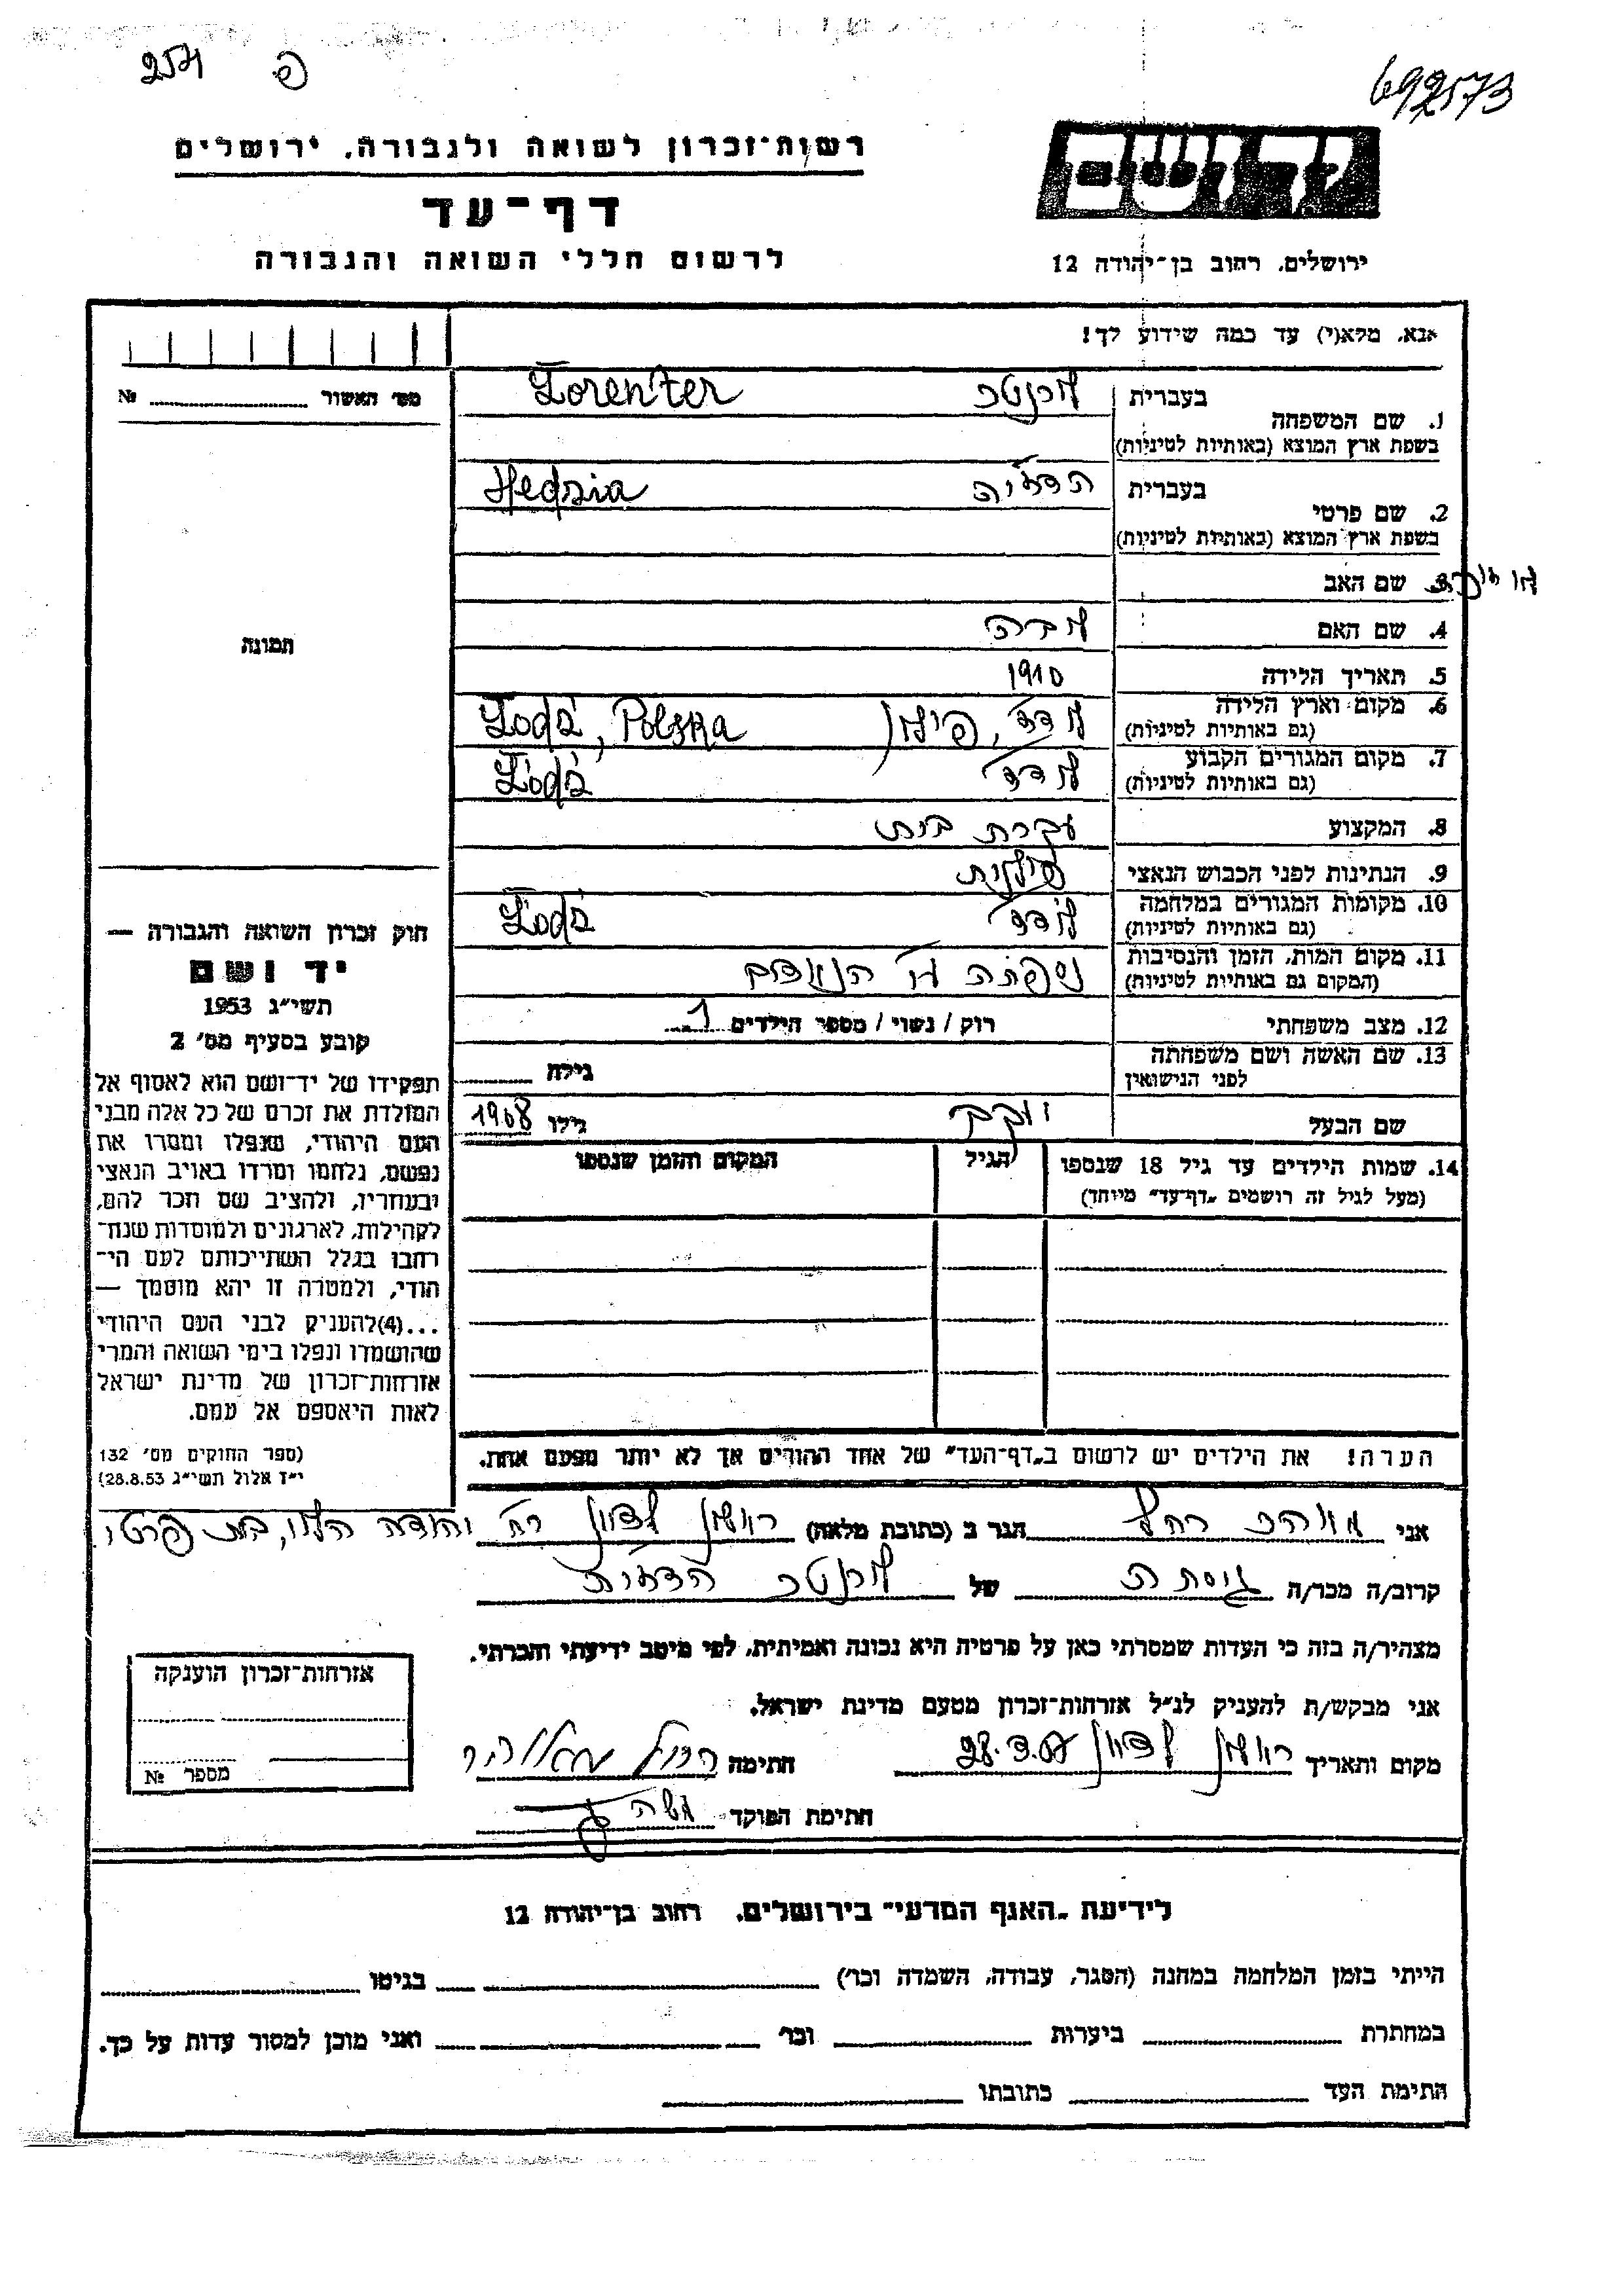 254 פ
692573
רשות־זכרון לשואה ולגבורה, ירושלים
דף־עד
לרשום חללי השואה והגבורה
יד ושם
ירושלים, רחוב בן־יהודה 12
אנא, מלא(י) עד כמה שידוע לך!
מס׳ האשור №
1. שם המשפחה
בעברית לורנטר Lorenter
בשפת ארץ המוצא (באותיות לטיניות)
2. שם פרטי
בעברית הדז׳יה Hedzia
בשפת ארץ המוצא (באותיות לטיניות)
3. שם האב
4. שם האם
5. תאריך הלידה 1910
6. מקום וארץ הלידה לודז׳, פולין Łodz, Polska
(גם באותיות לטיניות)
7. מקום המגורים הקבוע לודז׳ Łodz
(גם באותיות לטיניות)
8. המקצוע עקרת בית
9. הנתינות לפני הכבוש הנאצי פולנית
10. מקומות המגורים במלחמה לודז׳ Łodz
(גם באותיות לטיניות)
11. מקום המות, הזמן והנסיבות נספתה
(המקום גם באותיות לטיניות)
12. מצב משפחתי רוק / נשוי / מספר הילדים 1
13. שם האשה ושם משפחתה
לפני הנישואין גילה
שם הבעל יעקב גילו 1908
14. שמות הילדים עד גיל 18 שנספו הגיל המקום והזמן שנספו
(מעל לגיל זה רושמים „דף־עד״ מיוחד)
הערה! את הילדים יש לרשום ב„דף־העד״ של אחד ההורים אך לא יותר מפעם אחת.
תמונה
חוק זכרון השואה והגבורה —
יד ושם
תשי״ג 1953
קובע בסעיף מס׳ 2
תפקידו של יד־ושם הוא לאסוף אל
המולדת את זכרם של כל אלה מבני
העם היהודי, שנפלו ומסרו את
נפשם, נלחמו ומרדו באויב הנאצי
ובעוזריו, ולהציב שם וזכר להם,
לקהילות, לארגונים ולמוסדות שנח־
רבו בגלל השתייכותם לעם הי־
הודי, ולמטרה זו יהא מוסמך —
...(4)להעניק לבני העם היהודי
שהושמדו ונפלו בימי השואה והמרי
אזרחות־זכרון של מדינת ישראל
לאות היאספם אל עמם.
(ספר החוקים מס׳ 132
י״ז אלול תשי״ג 28.8.53)
אני רחל הגר ב (כתובת מלאה) ראשון לציון רח׳ יהודה הלוי,
קרוב/ה מכר/ה גיסתה של לורנטר הדז׳יה
מצהיר/ה בזה כי העדות שמסרתי כאן על פרטיה היא נכונה ואמיתית, לפי מיטב ידיעתי והכרתי.
אני מבקש/ת להעניק לנ״ל אזרחות־זכרון מטעם מדינת ישראל.
מקום ותאריך ראשון לציון חתימה רחל
חתימת הפוקד
אזרחות־זכרון הוענקה
מספר №
לידיעת „האגף המדעי״ בירושלים, רחוב בן־יהודה 12
הייתי בזמן המלחמה במחנה (הסגר, עבודה, השמדה וכו׳) בגיטו
במחתרת ביערות וכו׳ ואני מוכן למסור עדות על כך.
חתימת העד כתובתו